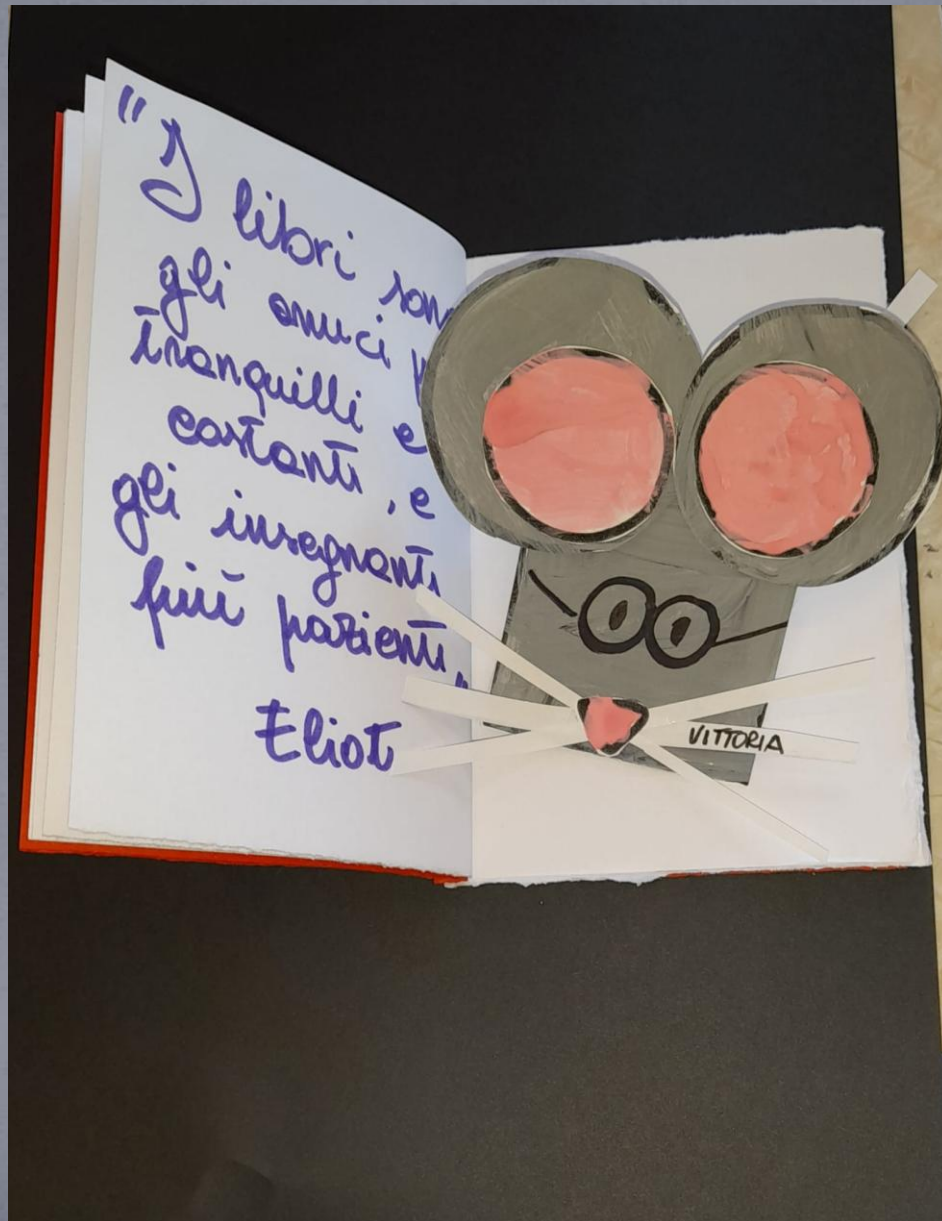 "I libri son
gli amici p
tranquilli e
costanti, e
gli insegnanti
più pazienti"
Eliot
VITTORIA